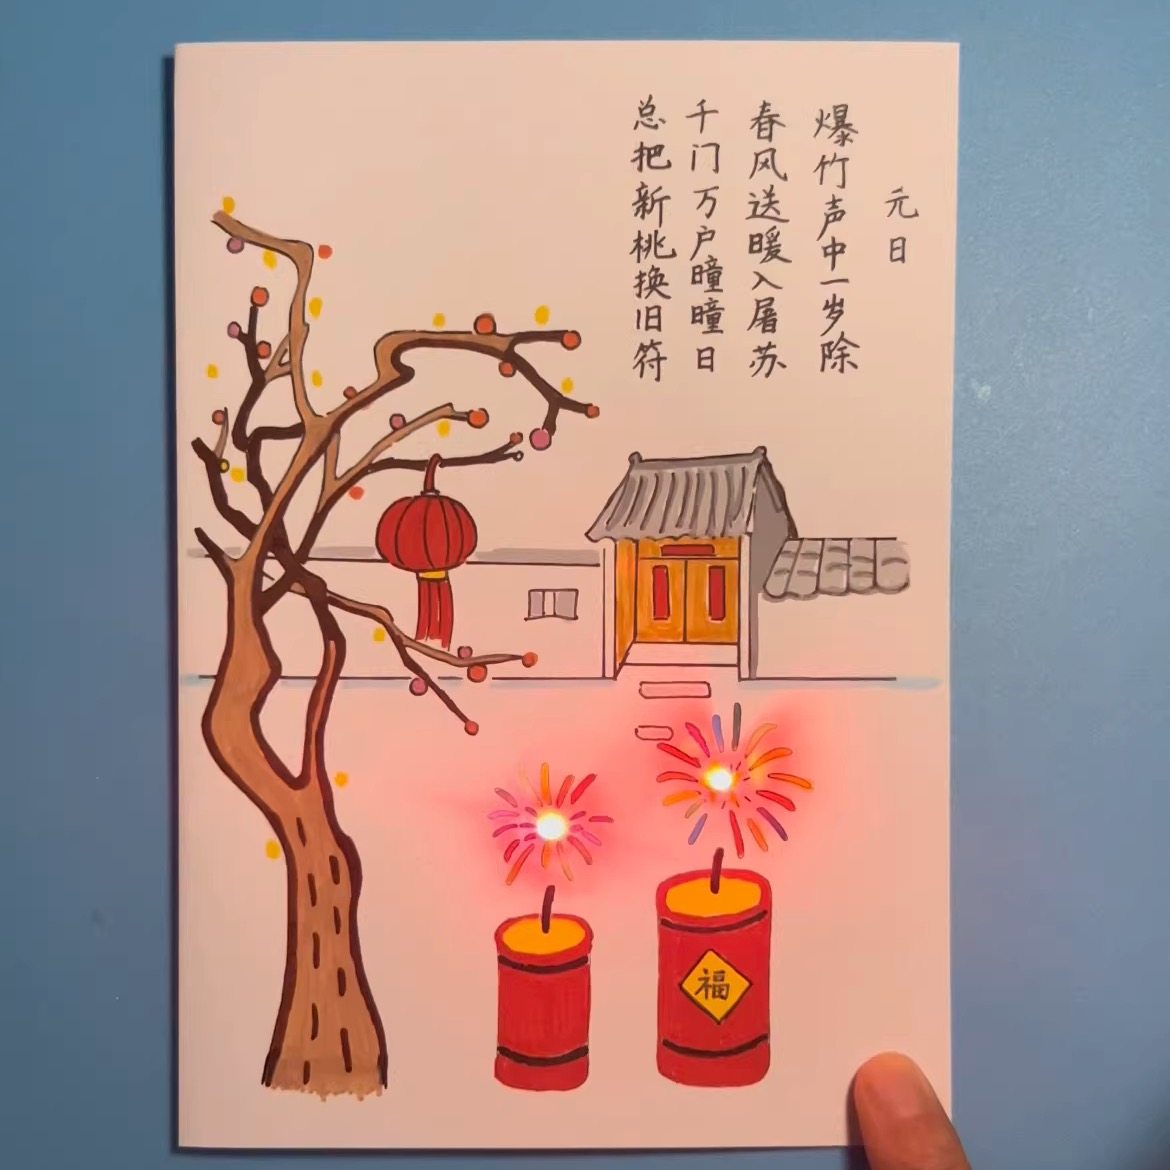 元日
爆竹声中一岁除
春风送暖入屠苏
千门万户曈曈日
总把新桃换旧符
福